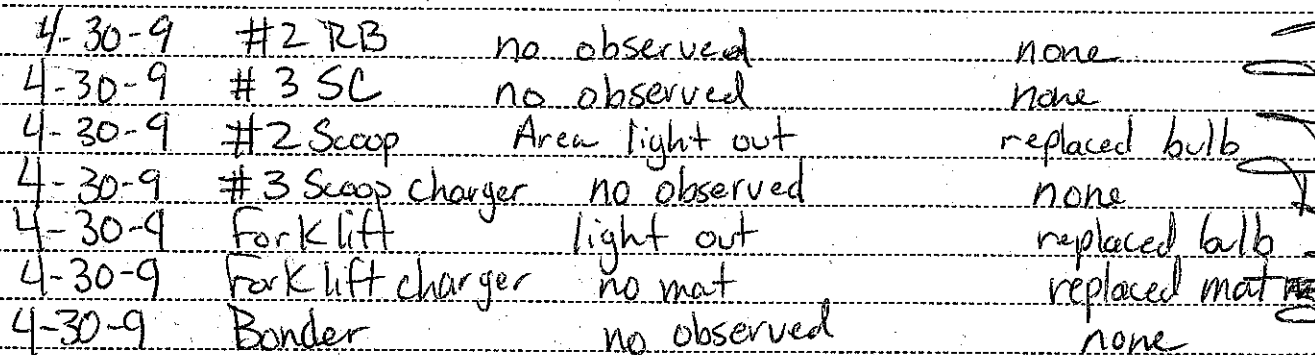 4-30-9 #2 RB no observed none
4-30-9 #3 SC no observed none
4-30-9 #2 Scoop Area light out replaced bulb
4-30-9 #3 Scoop charger no observed none
4-30-9 Forklift light out replaced bulb
4-30-9 Forklift charger no mat replaced mat
4-30-9 Bonder no observed none